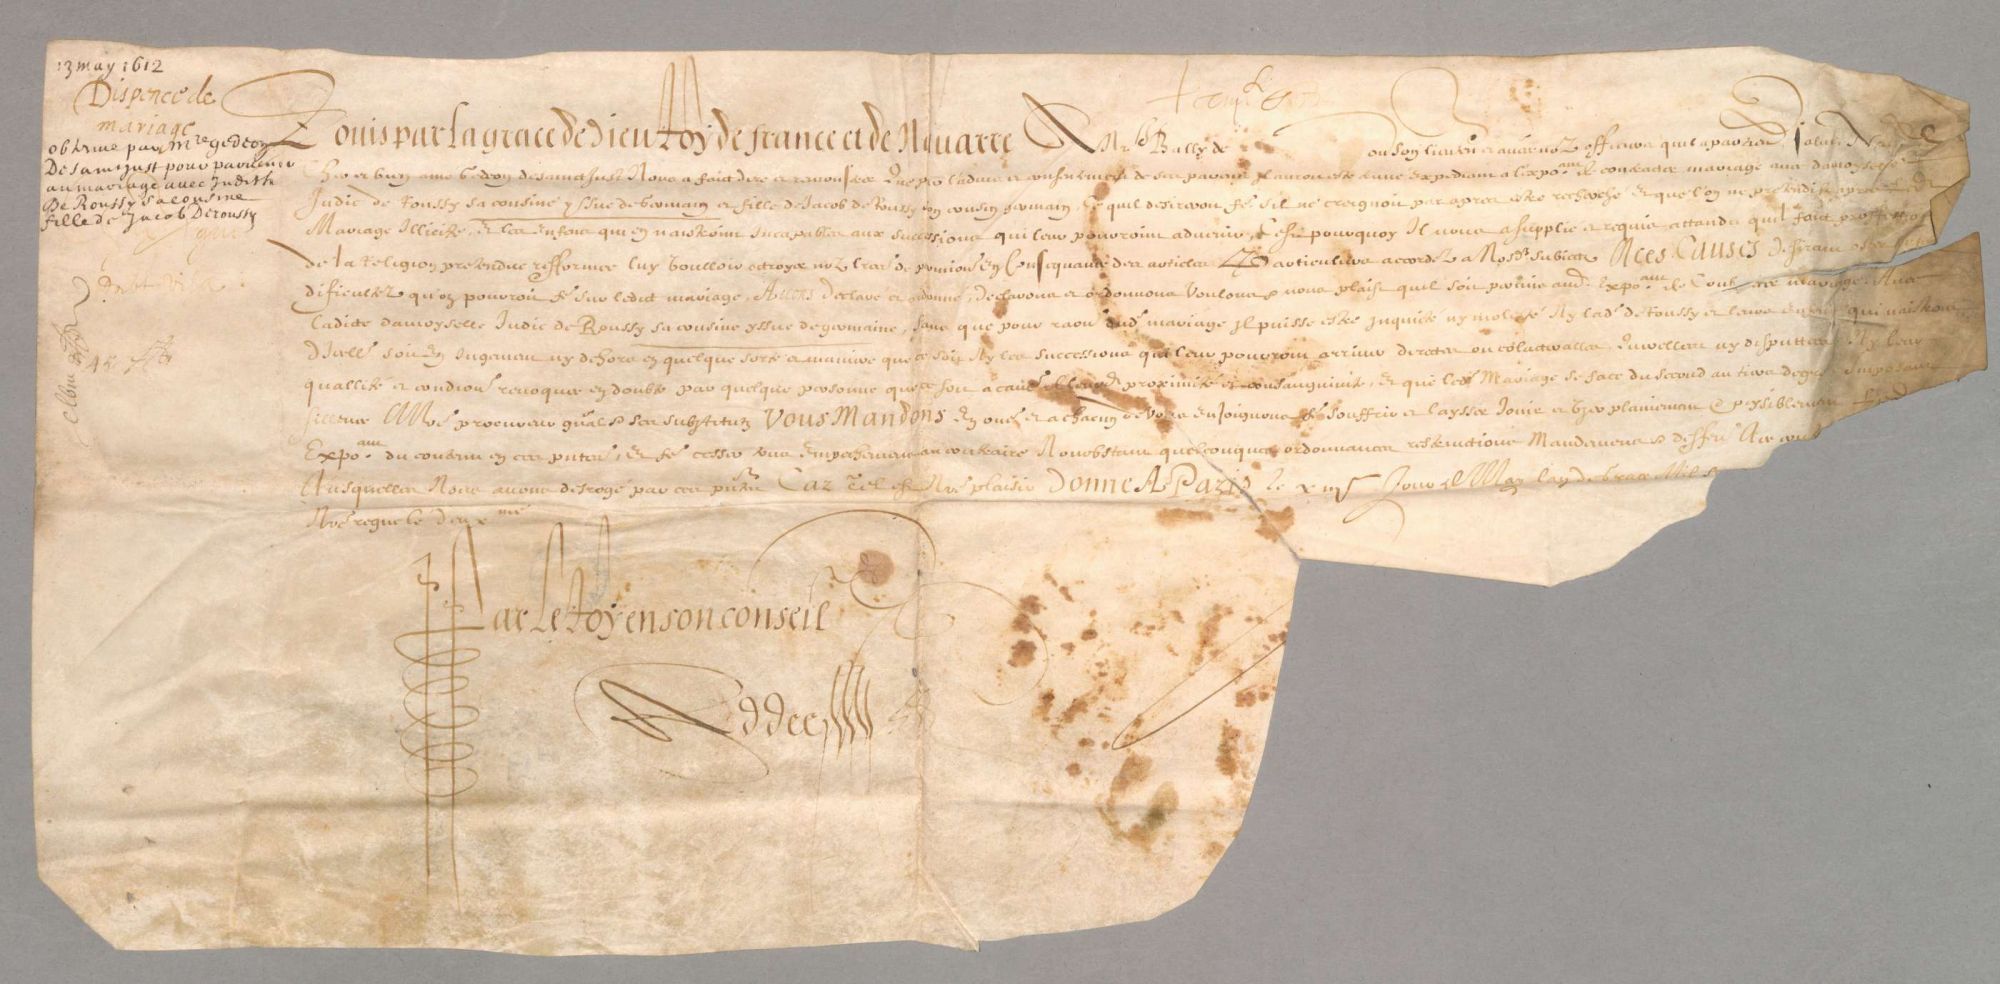 13 may 1612
Dispence de
mariage
obtenue par Mre gedeon
De sainct Just pour parvenir
au mariage avec Judith
De Roussy sa cousine
fille de Jacob De roussy
Louis par la grace de dieu Roy de france et de Navarre A Nre Bally de ou son lieuten et autres noz officiers quil apartien Salut Nre
Cher et bien amé Gedeon de sainct Just Nous a faict dire et remonstrer Que par l'advis et consentement de ses parens Il auroit esté advisé expediant a l'expoant de contracter mariage avec damoyselle
Judic de Roussy sa cousine yssue de Germain et fille de Jacob de Roussy son cousin germain, Ce quil desireroit fe sil ne creignoit par apres estre recherché et que l'on ne pretendit apres
Mariage Illicite, et les enfans qui en naistroint Incapables aux successions qui leur pourroint advenir, C'est pourquoy Il nous a supplié et requis attandu quil faict proffession
de la Religion pretendue refformee luy voulloir octroyer noz lres de permission En Consequance des articles particuliers accordez a Nosd subiects A ces Causes desirans oster les
dificultez qu'on pourroit fe sur ledict mariage, Avons declaré et ordonné, declarons et ordonnons voulons & nous plaist quil soit permis aud Expoant de Contracter mariage Avec
ladicte damoyselle Judic de Roussy sa cousine yssue de germaine, sans que pour raon dud mariage Il puisse estre Inquieté ny molesté Ny lad de Roussy et leurs enfans qui naistront
d'icelluy soit En Jugement ny dehors en quelque sorte et maniere que ce soit Ny les successions qui leur pourroint arriver directes ou colateralles, querellees ny disputtees Ny leur
quallité et condion revoquee en doubte par quelque personne que ce soit a cause de proximité et consanguinité, et que led Mariage se face du second au tiers degré Imposant
sillence A Nos procureurs gnalx & ses substituts Vous Mandons En oue et a chacun de vous enjoignons fe souffrir et laysser Jouir et user plainement & paysiblement led
Expoant du contenu en ces putes, et fe cesser tous empeschemens au contraire Nonobstant quelconques ordonnances restrinctions Mandemens & deffens A ce con
Ausquelles Nous avons desrogé par ces putes Car Tel est Nre plaisir Donné A Paris le xiiie Jour de May l'an de grace Mil s
Nre regne le deuxme
Par le Roy en son conseil